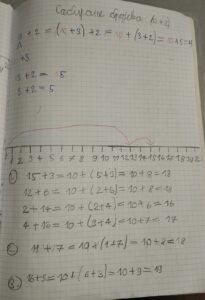 Сабирање бројева (10+2)
13+2 = (10+3)+2 = 10+(3+2) = 10+5=15
3+2 = 5
3+2 = 5
0 1 2 3 4 5 6 7 8 9 10 11 12 13 14 15 16 17 18 19 20 21 22
1) 15+3=10+(5+3)=10+8=18
12+6 = 10+(2+6)=10+8=18
2+14=10+(2+4)=10+6=16
4+13=10+(3+4)=10+7=17
2. 11+7=10+(1+7)=10+8=18
3. 16+3=10+(6+3)=10+9=19